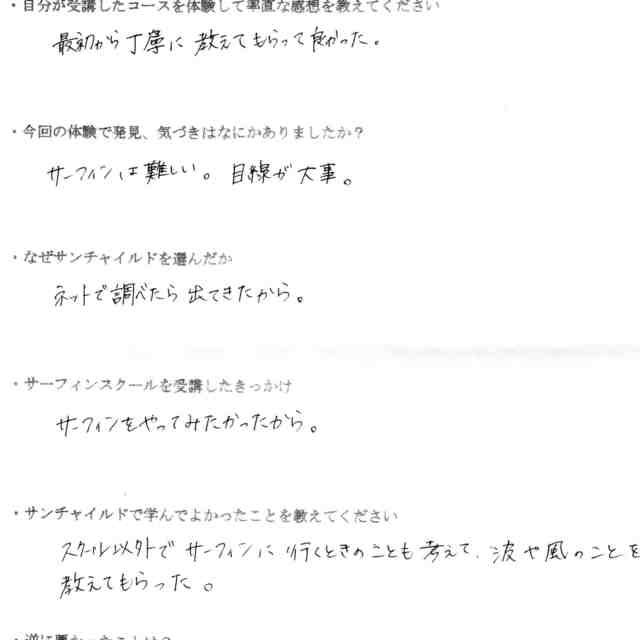 ・自分が受講したコースを体験して率直な感想を教えてください
最初から丁寧に教えてもらって良かった。
・今回の体験で発見、気づきはなにかありましたか？
サーフィンは難しい。目線が大事。
・なぜサンチャイルドを選んだか
ネットで調べたら出てきたから。
・サーフィンスクールを受講したきっかけ
サーフィンをやってみたかったから。
・サンチャイルドで学んでよかったことを教えてください
スクール以外でサーフィンに行くときのことも考えて、波や風のことを
教えてもらった。